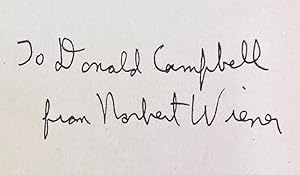 To Donald Campbell
from Norbert Wiener